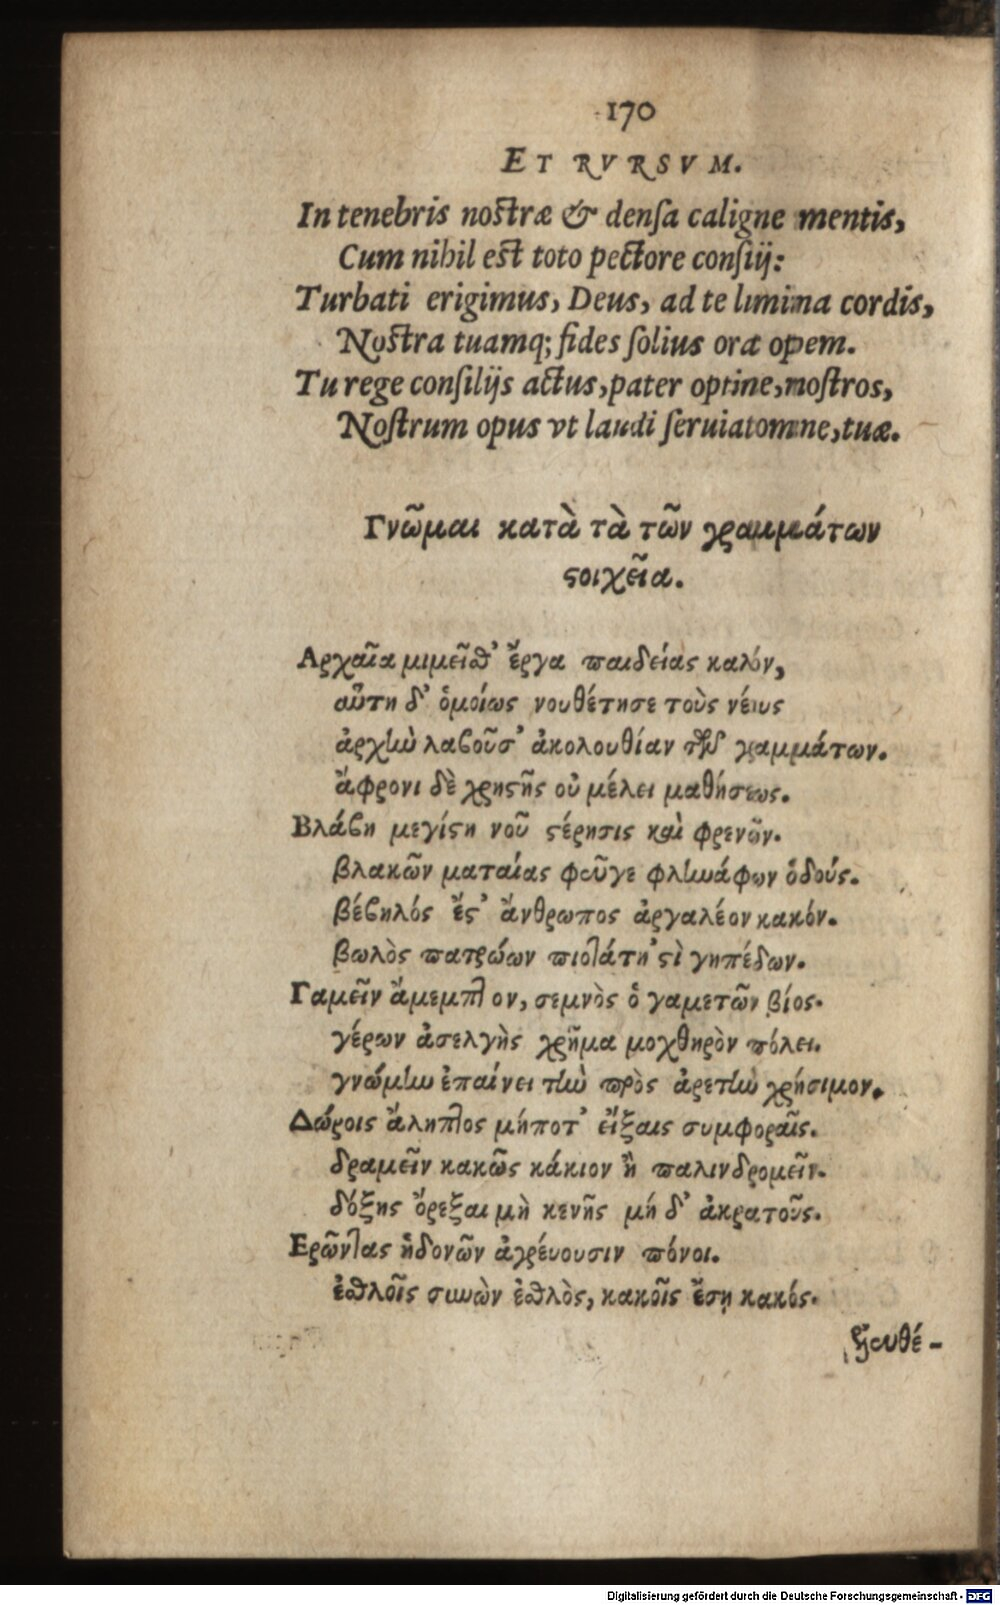 170
ET RVRSVM.
In tenebris nostræ & densa caligne mentis,
Cum nihil est toto pectore consiij:
Turbati erigimus, Deus, ad te lumina cordis,
Nostra tuamq; fides solius orat opem.
Tu rege consilijs actus, pater optime, nostros,
Nostrum opus vt laudi seruiat omne, tuæ.
Γνῶμαι κατὰ τὰ τῶν γραμμάτων
ϛοιχεῖα.
Αρχαῖα μιμεῖσθ' ἔργα παιδείας καλόν,
αὕτη δ' ὁμοίως νουθέτησε τοὺς νέους
ἀρχὴν λαβοῦσ' ἀκολουθίαν τῶν γραμμάτων.
ἄφρονι δὲ χρηϛῆς οὐ μέλει μαθήσεως.
Βλάβη μεγίϛη νοῦ ϛέρησις καὶ φρενῶν.
βλακῶν ματαίας φεῦγε φληνάφων ὁδούς.
βέβηλός ἐϛ' ἄνθρωπος ἀργαλέον κακόν.
βωλὸς πατρώων πιοτάτη 'ϛὶ γηπέδων.
Γαμεῖν ἄμεμπτον, σεμνὸς ὁ γαμετῶν βίος.
γέρων ἀσελγὴς χρῆμα μοχθηρὸν πόλει.
γνώμην ἐπαίνει τὴν πρὸς ἀρετὴν χρήσιμον.
Δώροις ἄληπτος μήποτ' εἴξαις συμφοραῖς.
δραμεῖν κακῶς κάκιον ἢ παλινδρομεῖν.
δόξης ὄρεξαι μὴ κενῆς μή δ' ἀκρατοῦς.
Ερῶντας ἡδονῶν ἀγρέυουσιν πόνοι.
ἐσθλοῖς συνὼν ἐσθλὸς, κακοῖς ἔσῃ κακός.
Digitalisierung gefördert durch die Deutsche Forschungsgemeinschaft - DFG